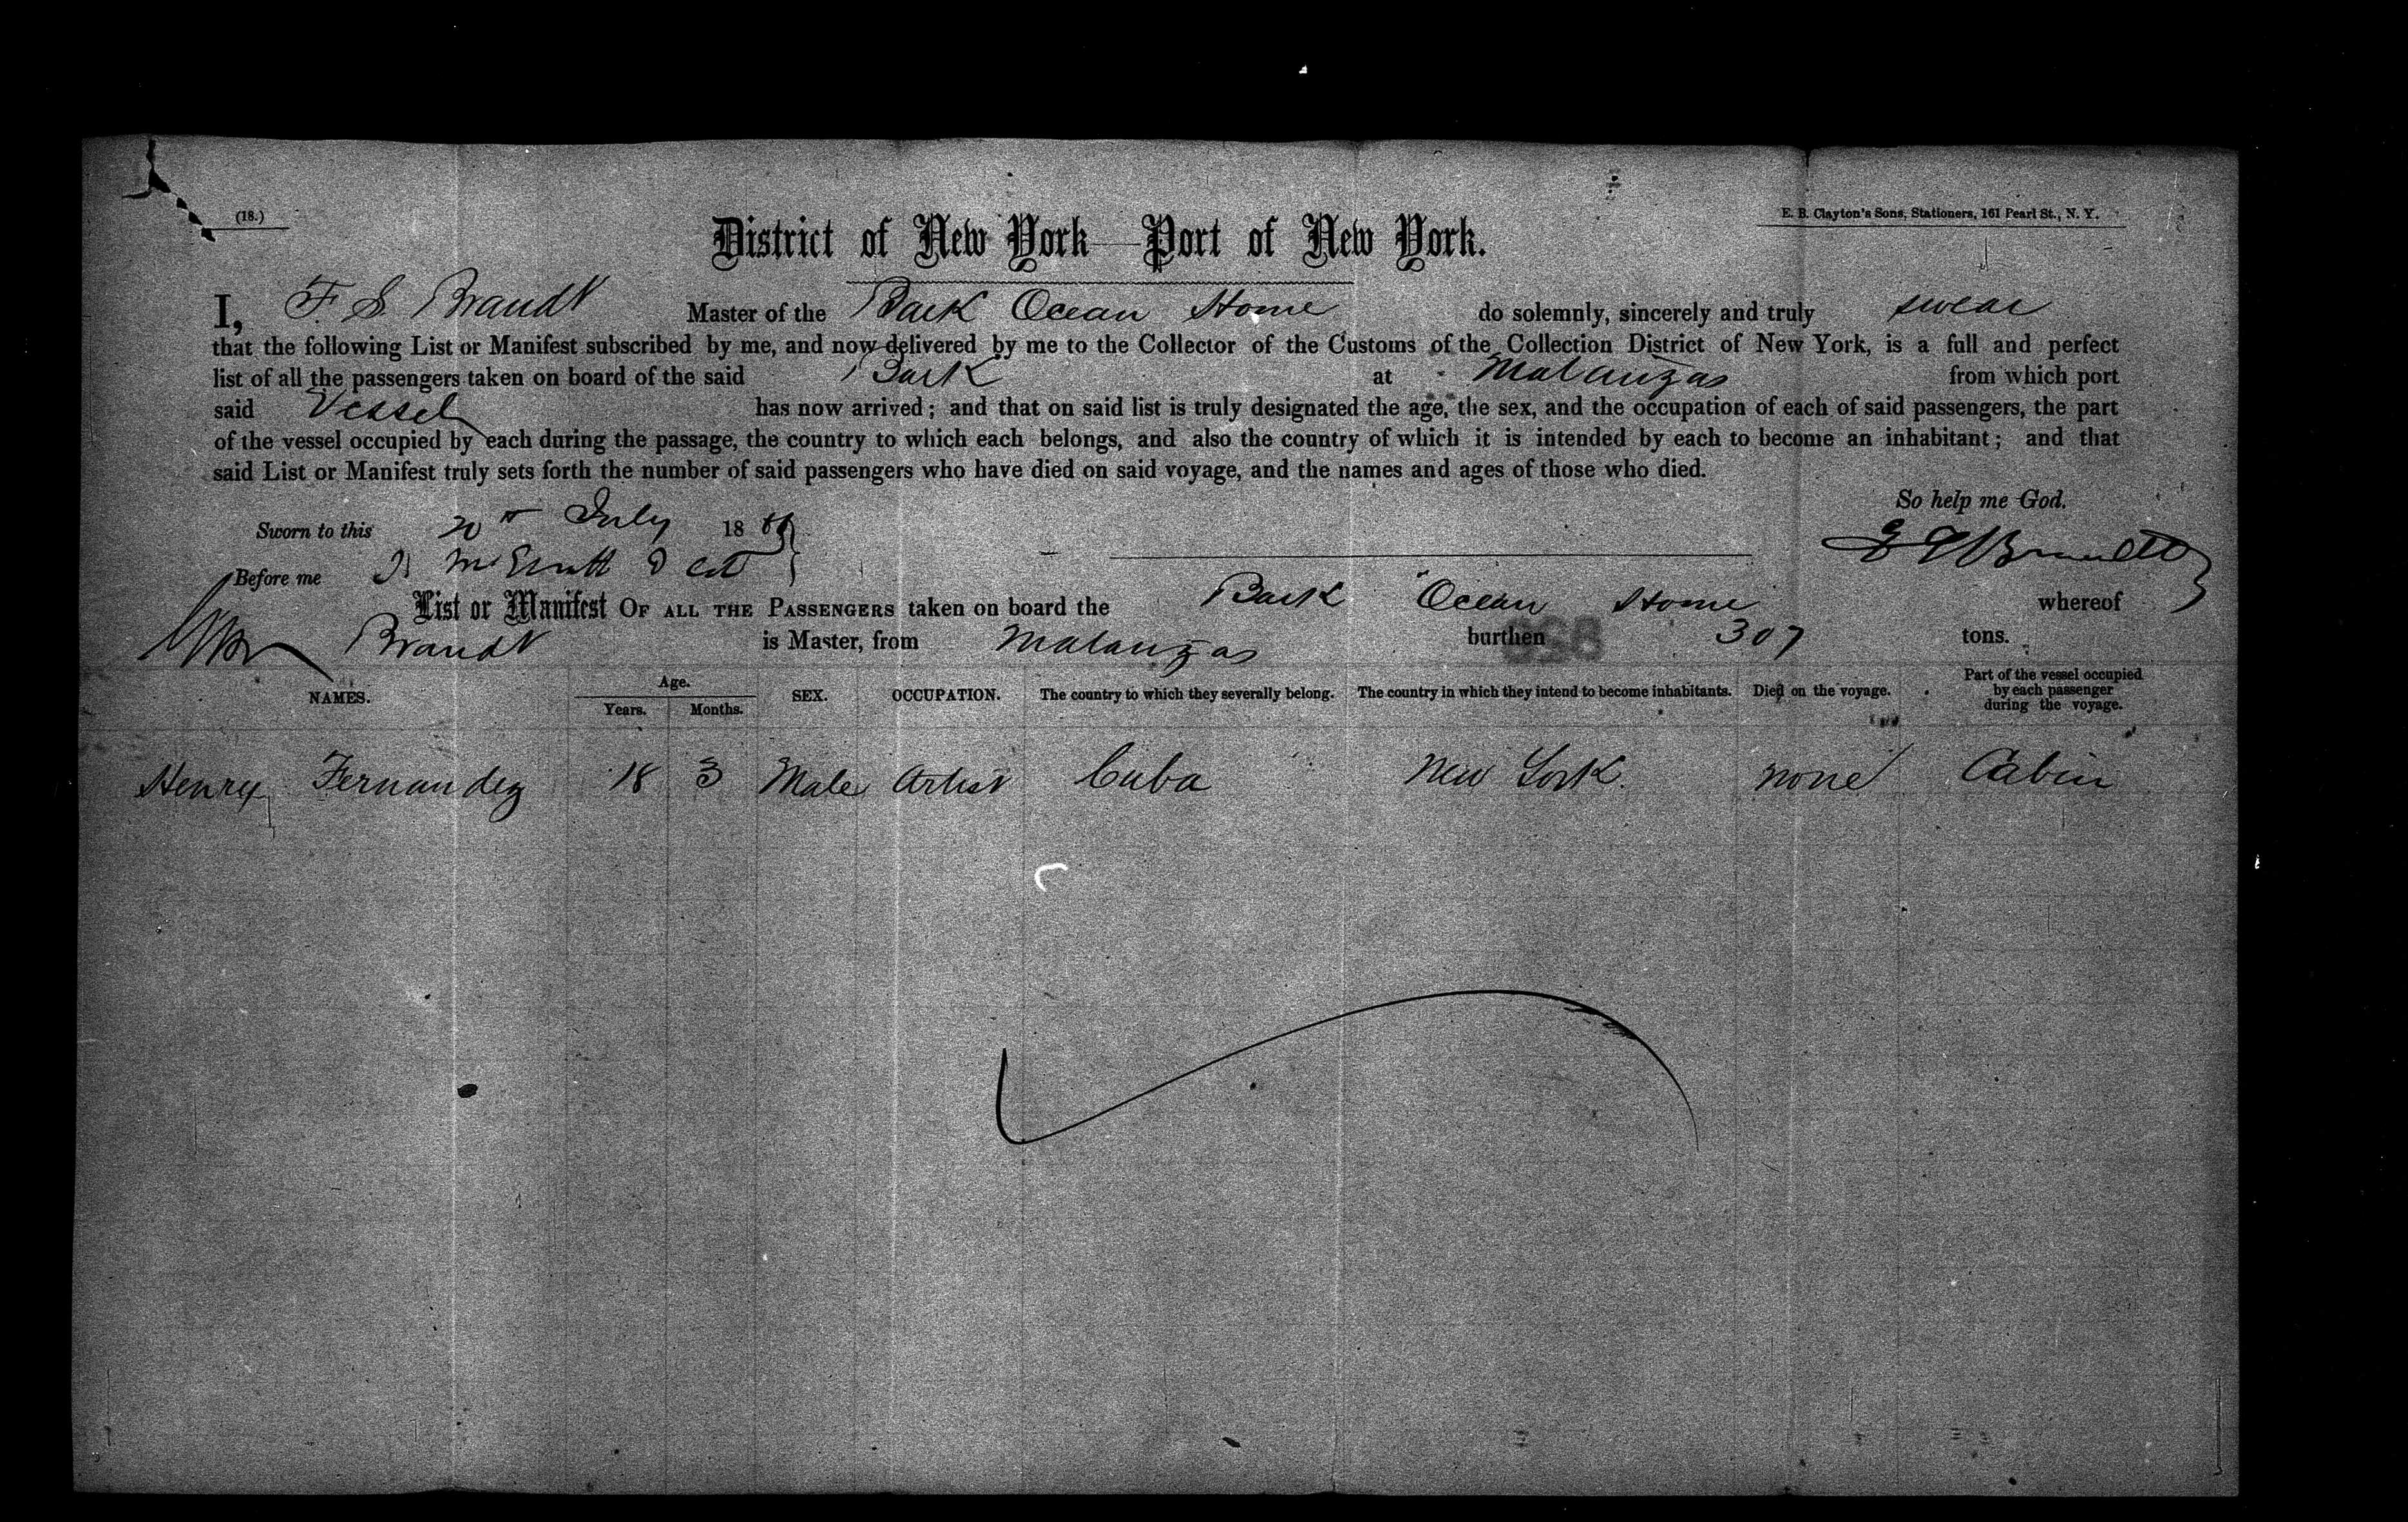 (18.)
E. B. Clayton's Sons, Stationers, 161 Pearl St., N. Y.
District of New York—Port of New York.
I, F. S. Brandt Master of the Bark Ocean Home do solemnly, sincerely and truly swear
that the following List or Manifest subscribed by me, and now delivered by me to the Collector of the Customs of the Collection District of New York, is a full and perfect
list of all the passengers taken on board of the said Bark at Matanzas from which port
said Vessel has now arrived; and that on said list is truly designated the age, the sex, and the occupation of each of said passengers, the part
of the vessel occupied by each during the passage, the country to which each belongs, and also the country of which it is intended by each to become an inhabitant; and that
said List or Manifest truly sets forth the number of said passengers who have died on said voyage, and the names and ages of those who died.
So help me God.
Sworn to this 20 July 18
Brandt
Before me
List or Manifest OF ALL THE PASSENGERS taken on board the Bark Ocean Home whereof
Brandt is Master, from Matanzas burthen 307 tons.
858
NAMES. Age. Years. Months. SEX. OCCUPATION. The country to which they severally belong. The country in which they intend to become inhabitants. Died on the voyage. Part of the vessel occupied by each passenger during the voyage.
Henry Fernandez 18 3 Male Artist Cuba New York. none Cabin